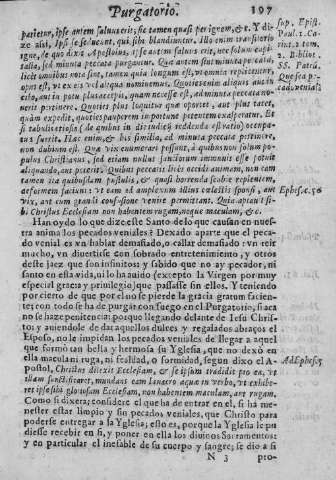 Purgatorio. 197
parietur, ipse autem saluus erit; sic tamen quasi per ignem, &c. Y di-
xe assi, Ipsi se seducunt, qui sibi blandiuntur. Illo enim transitorio
igne, de quo dixit Apostolus, ipse autem saluus erit, non
sed minuta peccata purgantur. Que autem sint minuta peccata,
licèt omnibus nota sint, tamen quia longum est, vt omnia replicentur,
opus est, vt ex eis vel aliqua nominemus. Quoties enim aliquis aut in
cibo, aut in potu plus accipit, quàm necesse est, ad minuta peccata no-
uerit pertinere. Quoties plus loquitur quàm oportet, aut plus tacet,
quàm expedit, quoties pauperem importunè petentem exasperat. Et
non dubium est. Que vix enumerari possunt, à quibus non solum po-
pulus Christianus, sed etiam nullus sanctorum immunis esse potuit
aliquando, aut poterit. Quibus peccatis licèt occidi animam, non
tamen ita quibusdam pustulis, & quasi horrenda scabie replentem,
deformem faciunt: vt eam ad amplexum illius cælestis sponsi, aut
vix, aut cum grandi confusione venire permittant. Quia aptauit si-
bi Christus Ecclesiam non habentem rugam, neque maculam, &c.
Han oydo lo que dize este Santo de lo que causan en nues-
tra anima los pecados veniales? Dexado aparte que el peca-
do venial es vn hablar demasiado, o callar demasiado: vn reir
mucho, vn diuertirse con sobrado entretenimiento, y otros
deste jaez que son infinitos: y sabido que no ay pecador, ni
santo en esta vida, ni lo ha auido (excepto la Virgen por muy
especial gracia y priuilegio) que passasse sin ellos. Y teniendo
por cierto de que por ellos no se pierde la gracia gratum facien-
te; con todo se ha de purgar con fuego en el Purgatorio, si aca
no se haze penitencia: porque llegando delante de Iesu Chris-
to; y auiendole de dar aquellos dulces y regalados abraços el
Esposo, no le impidan los pecados veniales de llegar a aquel
que formó tan bella y hermosa su Yglesia, que no dexó en
ella macula ni ruga, ni fealdad, o formidad, segun dixo el A-
postol, Christus dilexit Ecclesiam, & se ipsum tradidit pro ea, vt
illam sanctificaret, mundans eam lauacro aquæ in verbo, vt exhibe-
ret ipse sibi gloriosam Ecclesiam, non habentem maculam, aut rugam.
Como si dixera; considere el que ha de entrar en el, si ha me-
nester estar limpio y sin pecados veniales, que Christo para
poderse entregar a la Yglesia; esso es, porque la Yglesia le pu
diesse recebir en si, y poner en ella los diuinos Sacramentos:
y en particular el inefable de su cuerpo y sangre; se dio a si
N 3 pro-
sup. Epist.
Paul. 1. Co
rint. 3. tom.
2. Bibliot.
SS. Patrũ.
Que sea pe
cado venial.
Ephes. c. 5.
Ad Ephes. 5